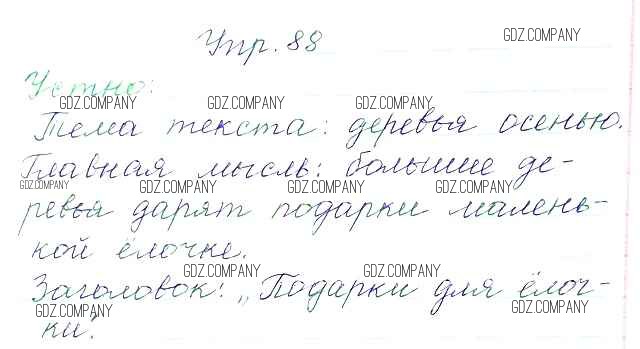 Упр. 88
GDZ.COMPANY
Устно:
GDZ.COMPANY GDZ.COMPANY GDZ.COMPANY
Тема текста: деревья осенью.
Главная мысль: большие де-
GDZ.COMPANY GDZ.COMPANY GDZ.COMPANY GDZ.COMPANY
ревья дарят подарки малень-
кой ёлочке.
GDZ.COMPANY GDZ.COMPANY
Заголовок: „Подарки для ёлоч-
GDZ.COMPANY GDZ.COMPANY GDZ.COMPANY
ки".